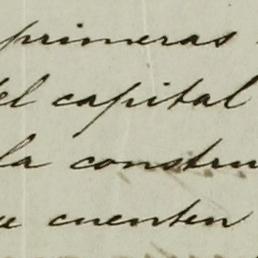 primeras
el capital
la constru
ue cuenten